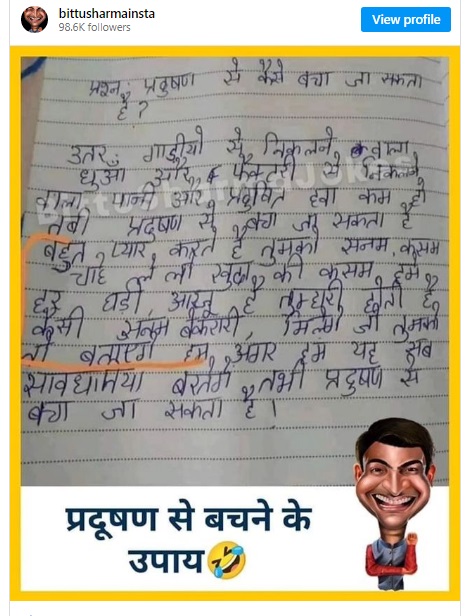 bittusharmainsta
98.6K followers
View profile
प्रश्न: प्रदुषण से कैसे बचा जा सकता
है ?
उतर: गाड़ीयो से निकलने वाला
धुआ और फैक्टरी से निकलने
वाला पानी और प्रदुषित हवा कम हो
तभी प्रदुषण से बचा जा सकता है
बहुत प्यार करते है तुमको सनम कसम
चाहे ले लो खुदा की कसम हमे
हर घड़ी आरजू है तुम्हारी होती है
कैसी सनम बेकरारी मिलोगे जो तुमको
तो बताएंगे हम अगर हम यह सब
सावधानिया बरतेंगे तभी प्रदुषण से
बचा जा सकता है ।
BittuSharmaJokes
प्रदूषण से बचने के
उपाय🤣